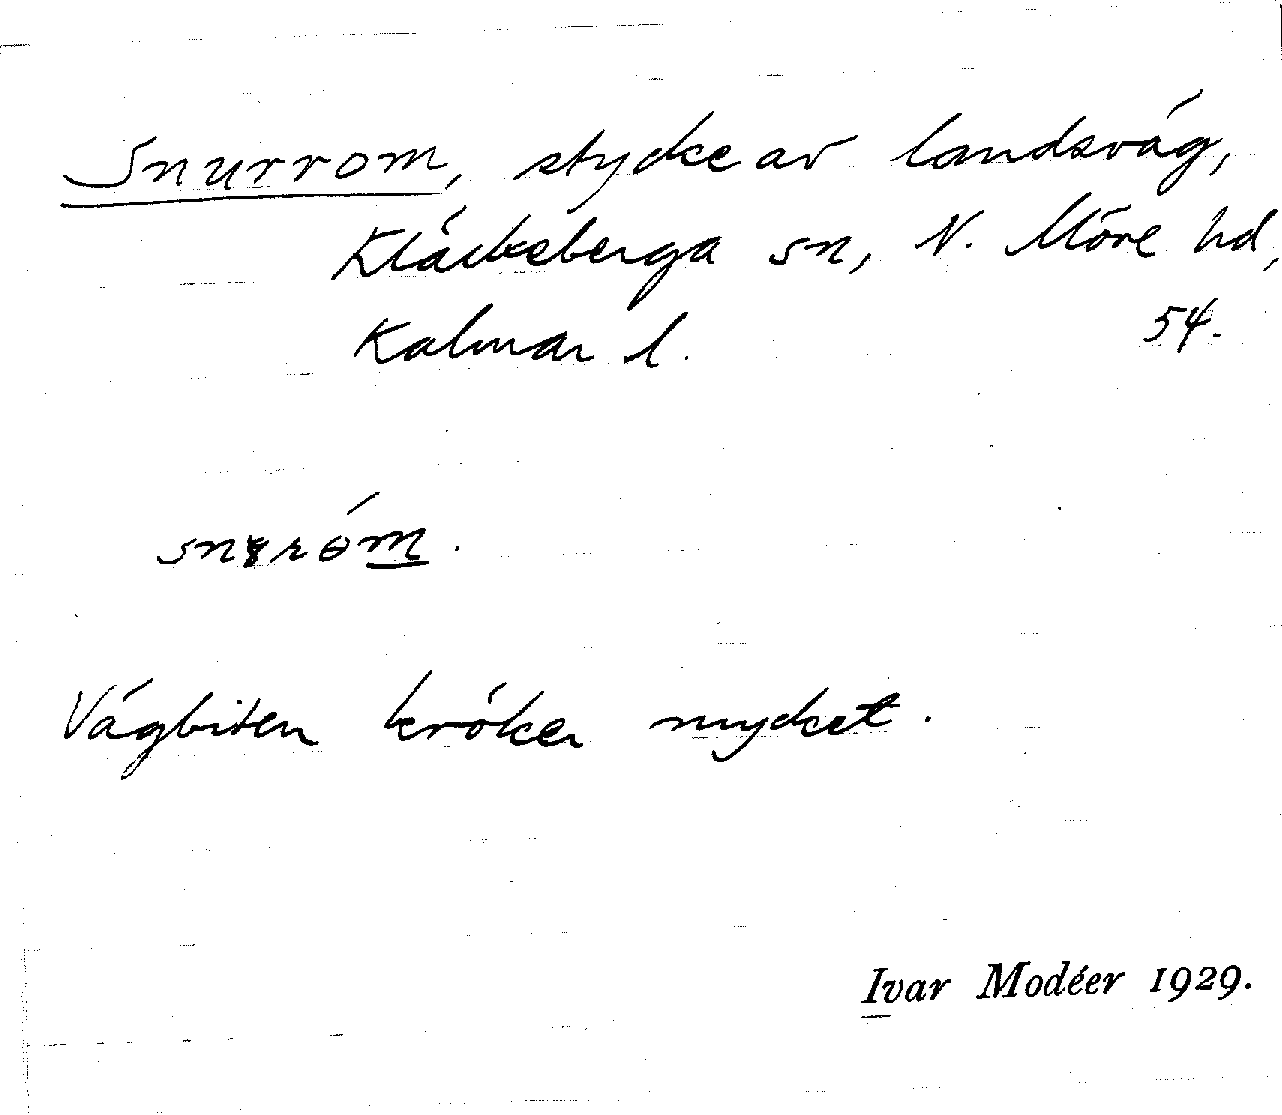 Snurrom, stycke av landsväg,
Kläckeberga sn, N. Möre hd,
Kalmar l. 54.
Vägbiten kröker mycket.
Ivar Modéer 1929.